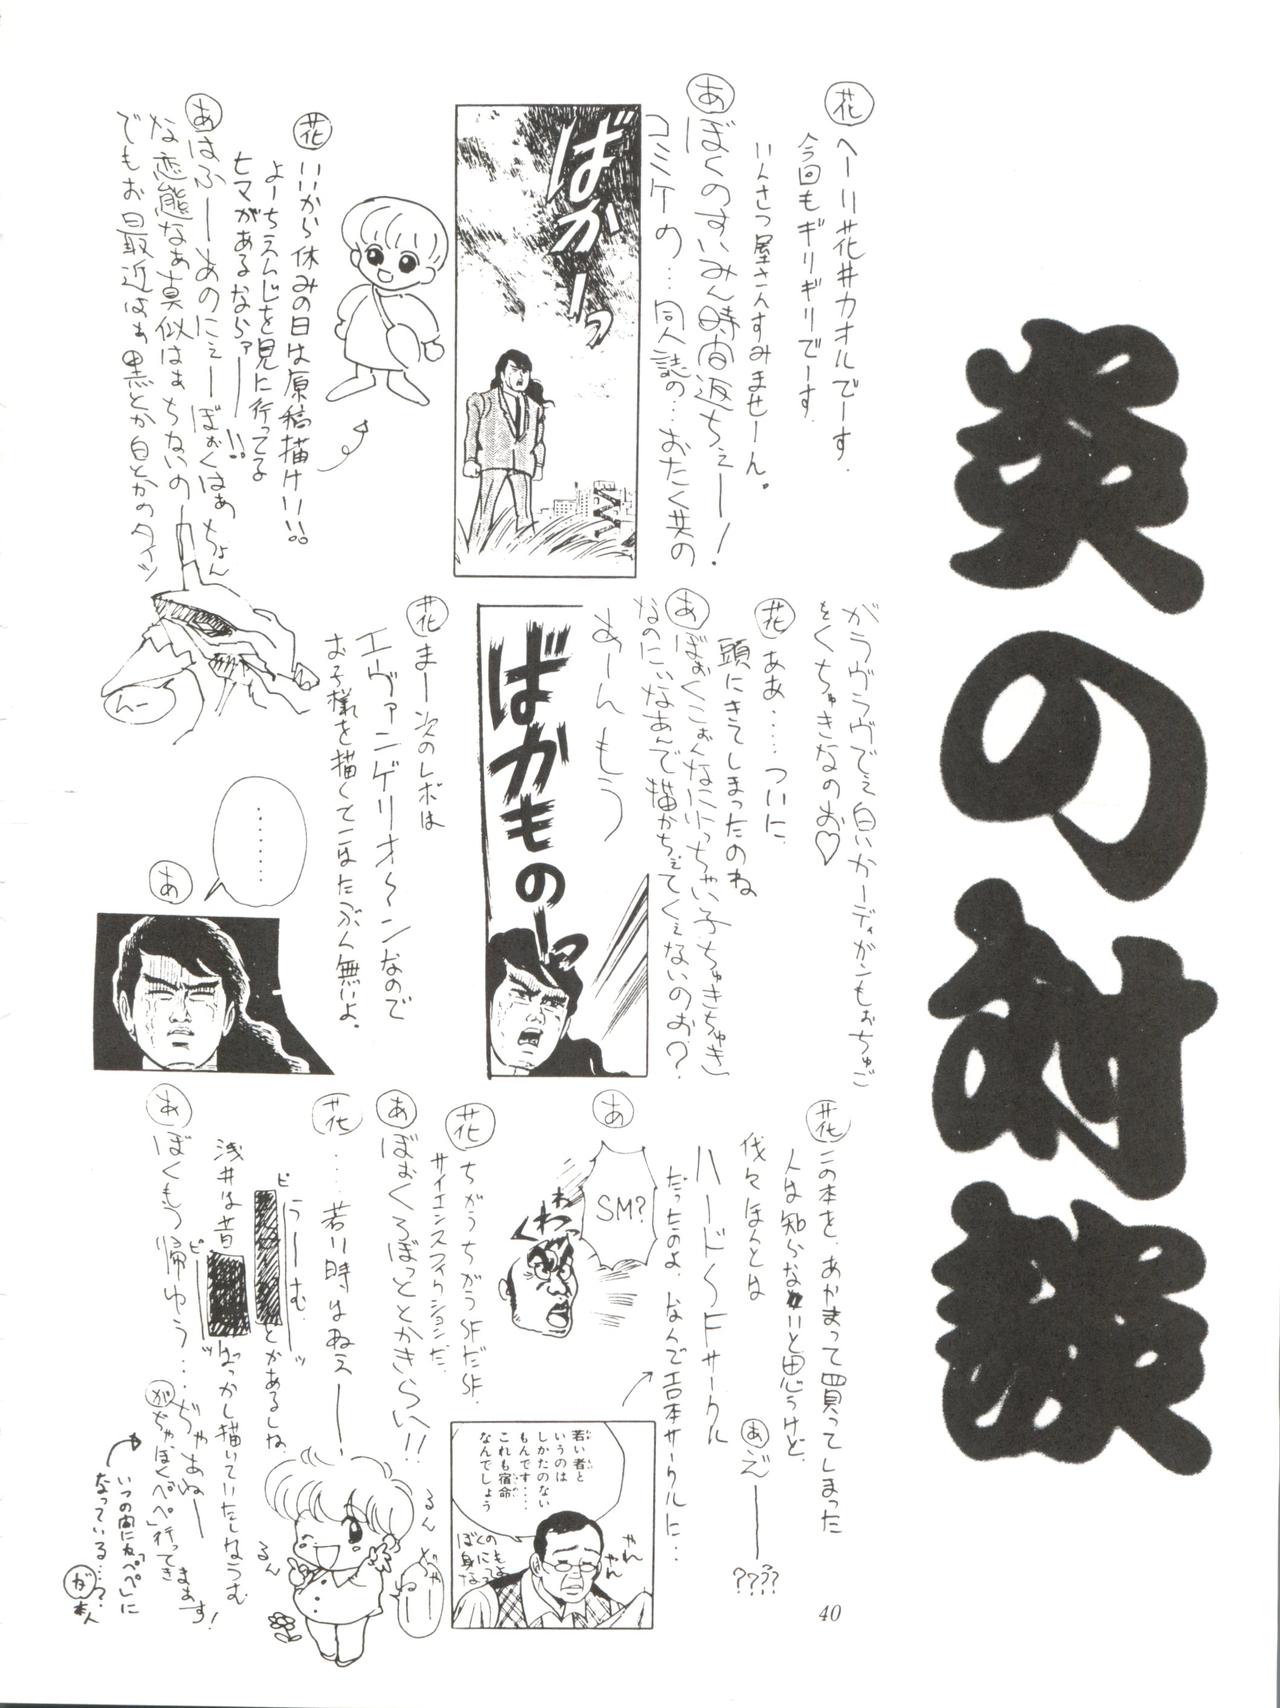 炎の対談
花 へーい花井カオルでーす.
今回もギリギリでーす.
いんさつ屋さんすみませーん。
あ ぼくのすいみん時間返ちぇー!
コミケの…同人誌の…おたく共の
ばかーっ
花 いいから休みの日は原稿描けい!!
よーちえんじを見に行ってる
ヒマがあるならァー!!
あ あはふーあのにぇーぼぉくはぁちょん
な変態なぁ真似はぁちないの
でもお最近はぁ黒とか白とかのタイツ
んー
がラヴラヴでぇ白いカーディガンもぉちゅご
をくちゅきなのお♡
花 ああ……ついに
頭にきてしまったのね
あ ぼぉくこぉんなにいっちゃい子ちゅきちゅき
なのにいなあんで描かちぇてくぇないのお?
あーんもう
ばかものーっ
花 まー次のレボは
エヴァンゲリオ〜ンなので
お子様を描くてーはたぶん無いよ.
………
あ
花 この本を、あやまって買ってしまった
人は知らないと思うけど、
我々ほんとは
あ えーーー????
ハード〜Fサークル
だったのよ、なんでエロ本サークルに…
若い者と
いうのは
しかたのない
もんです……
これも宿命
なんでしょう
やん
やん
あ
SM?
くわわっ
花 ちがうちがうSFだSF.
サイエンスフィクションだ.
あ ぼぉくろぼっとかきらい!!
花 ….若い時はねえーー
ピー うーむ
とかあるしね.
浅井は昔
ピー ばっかし描いていたしなうむ
あ ぼくもう帰ゆう….ぢゃあねー
がちゃぼく「ペペ」行ってき
まぁす!
るん
るん
いつの間にか「ペペ」に
なっている…?
が 本人
40